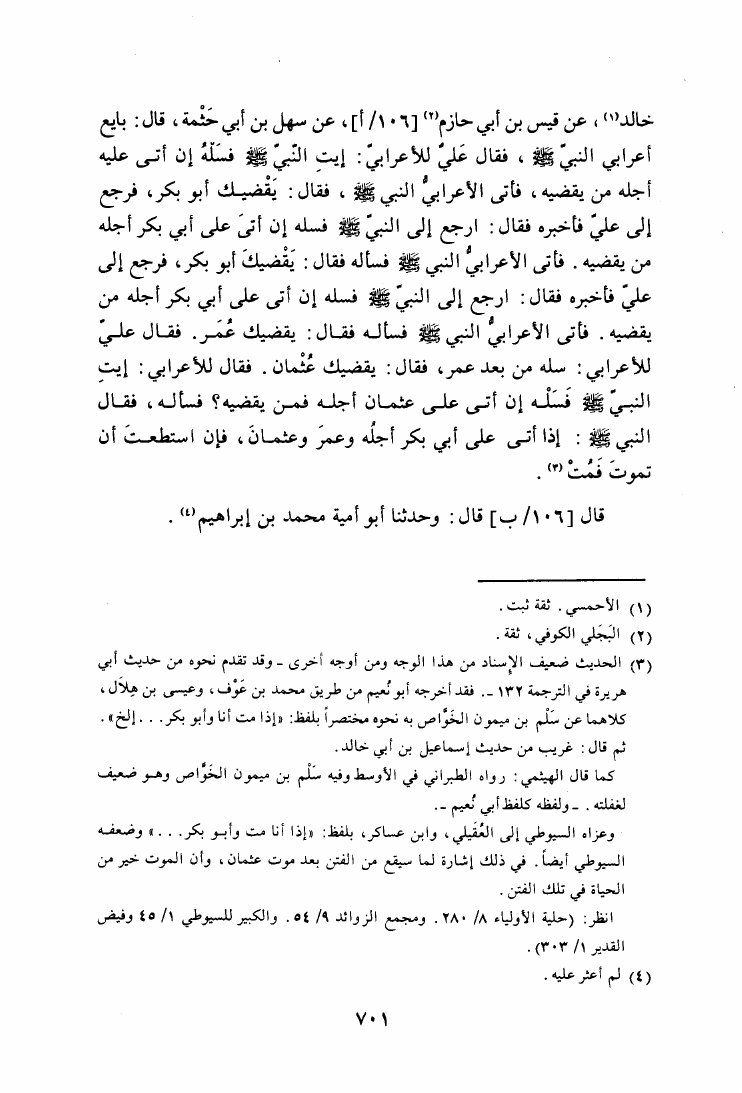 خالد(١)، عن قيس بن أبي حازم(٢) [١٠٦/ أ]، عن سهل بن أبي حَثْمة، قال: بايع
أعرابي النبيّ ﷺ، فقال عَليٌّ للأعرابيّ: إيتِ النّبيّ ﷺ فسَلْهُ إن أتـى عليه
أجله من يقضيه، فأتى الأعرابيُّ النبي ﷺ، فقال: يَقْضيـك أبو بكر، فرجع
إلى عليّ فأخبره فقال: ارجع إلى النبيّ ﷺ فسله إن أتىَ على أبي بكر أجله
من يقضيه. فأتى الأعرابيُّ النبي ﷺ فسأله فقال: يَقْضيكَ أبو بكر، فرجع إلى
عليّ فأخبره فقال: ارجع إلى النبيّ ﷺ فسله إن أتى على أبي بكر أجله من
يقضيه. فأتى الأعرابيُّ النبي ﷺ فسألـه فقـال: يقضيك عُمَـر. فقـال علـيّ
للأعرابي: سله من بعد عمر، فقال: يقضيك عُثْمان. فقال للأعرابي: إيتِ
النبـيّ ﷺ فَسَلْـه إن أتـى علـى عثمـان أجلـه فمـن يقضيه؟ فسألـه، فقـال
النبي ﷺ: إذا أتـى على أبي بكر أجلُه وعمرَ وعثمـانَ، فإن استطعـتَ أن
تموتَ فَمُتْ(٣).
قال [١٠٦/ ب] قال: وحدثنا أبو أمية محمد بن إبراهيم(٤).
(١) الأحمسي. ثقة ثبت.
(٢) البَجَلي الكوفي، ثقة.
(٣) الحديث ضعيف الإسناد من هذا الوجه ومن أوجه أخرى ـ وقد تقدم نحوه من حديث أبي
هريرة في الترجمة ١٣٢ ـ. فقد أخرجه أبو نُعيم من طريق محمد بن عَوْف، وعيسى بن هِلاَل،
كلاهما عن سَلْم بن ميمون الخَوَّاص به نحوه مختصراً بلفظ: «إذا مت أنا وأبو بكر... إلخ».
ثم قال: غريب من حديث إسماعيل بن أبي خالد.
كما قال الهيثمي: رواه الطبراني في الأوسط وفيه سَلْم بن ميمون الخَوَّاص وهـو ضعيف
لغفلته. ـ ولفظه كلفظ أبي نُعيم ـ.
وعزاه السيوطي إلى العُقَيلي، وابن عساكر، بلفظ: «إذا أنا مت وأبـو بكر...» وضعفـه
السيوطي أيضاً. في ذلك إشارة لما سيقع من الفتن بعد موت عثمان، وأن الموت خير من
الحياة في تلك الفتن.
انظر: (حلية الأولياء ٨/ ٢٨٠. ومجمع الزوائد ٩/ ٥٤. والكبير للسيوطي ١/ ٤٥ وفيض
القدير ١/ ٣٠٣).
(٤) لم أعثر عليه.
٧٠١